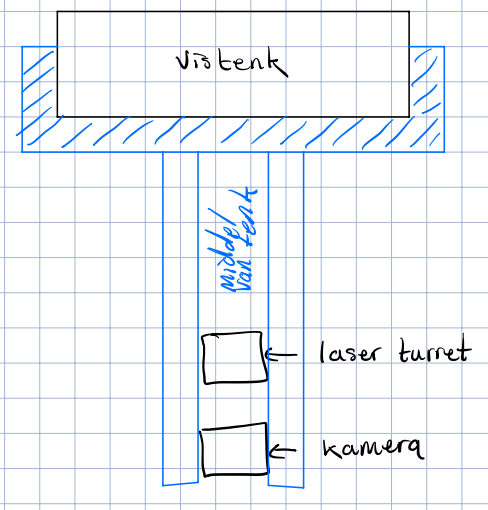 vistenk
middel
van tenk
laser turret
kamera